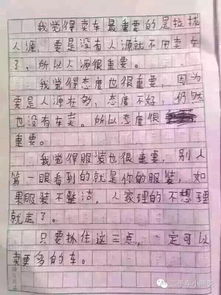 我觉得卖车最重要的是拉拢
人源，要是没有人源就不用卖车
了，所以人源很重要。
我觉得态度也很重要，因为
要是人源有啦，态度不好，仍然
也没有车卖。所以态度很
重要。
我觉得服装也很重要，别人
第一眼看到的就是你的服装，如
果服装不整洁，人家理的不想理
就走了。
只要抓住这三点，一定可以
卖更多的车。